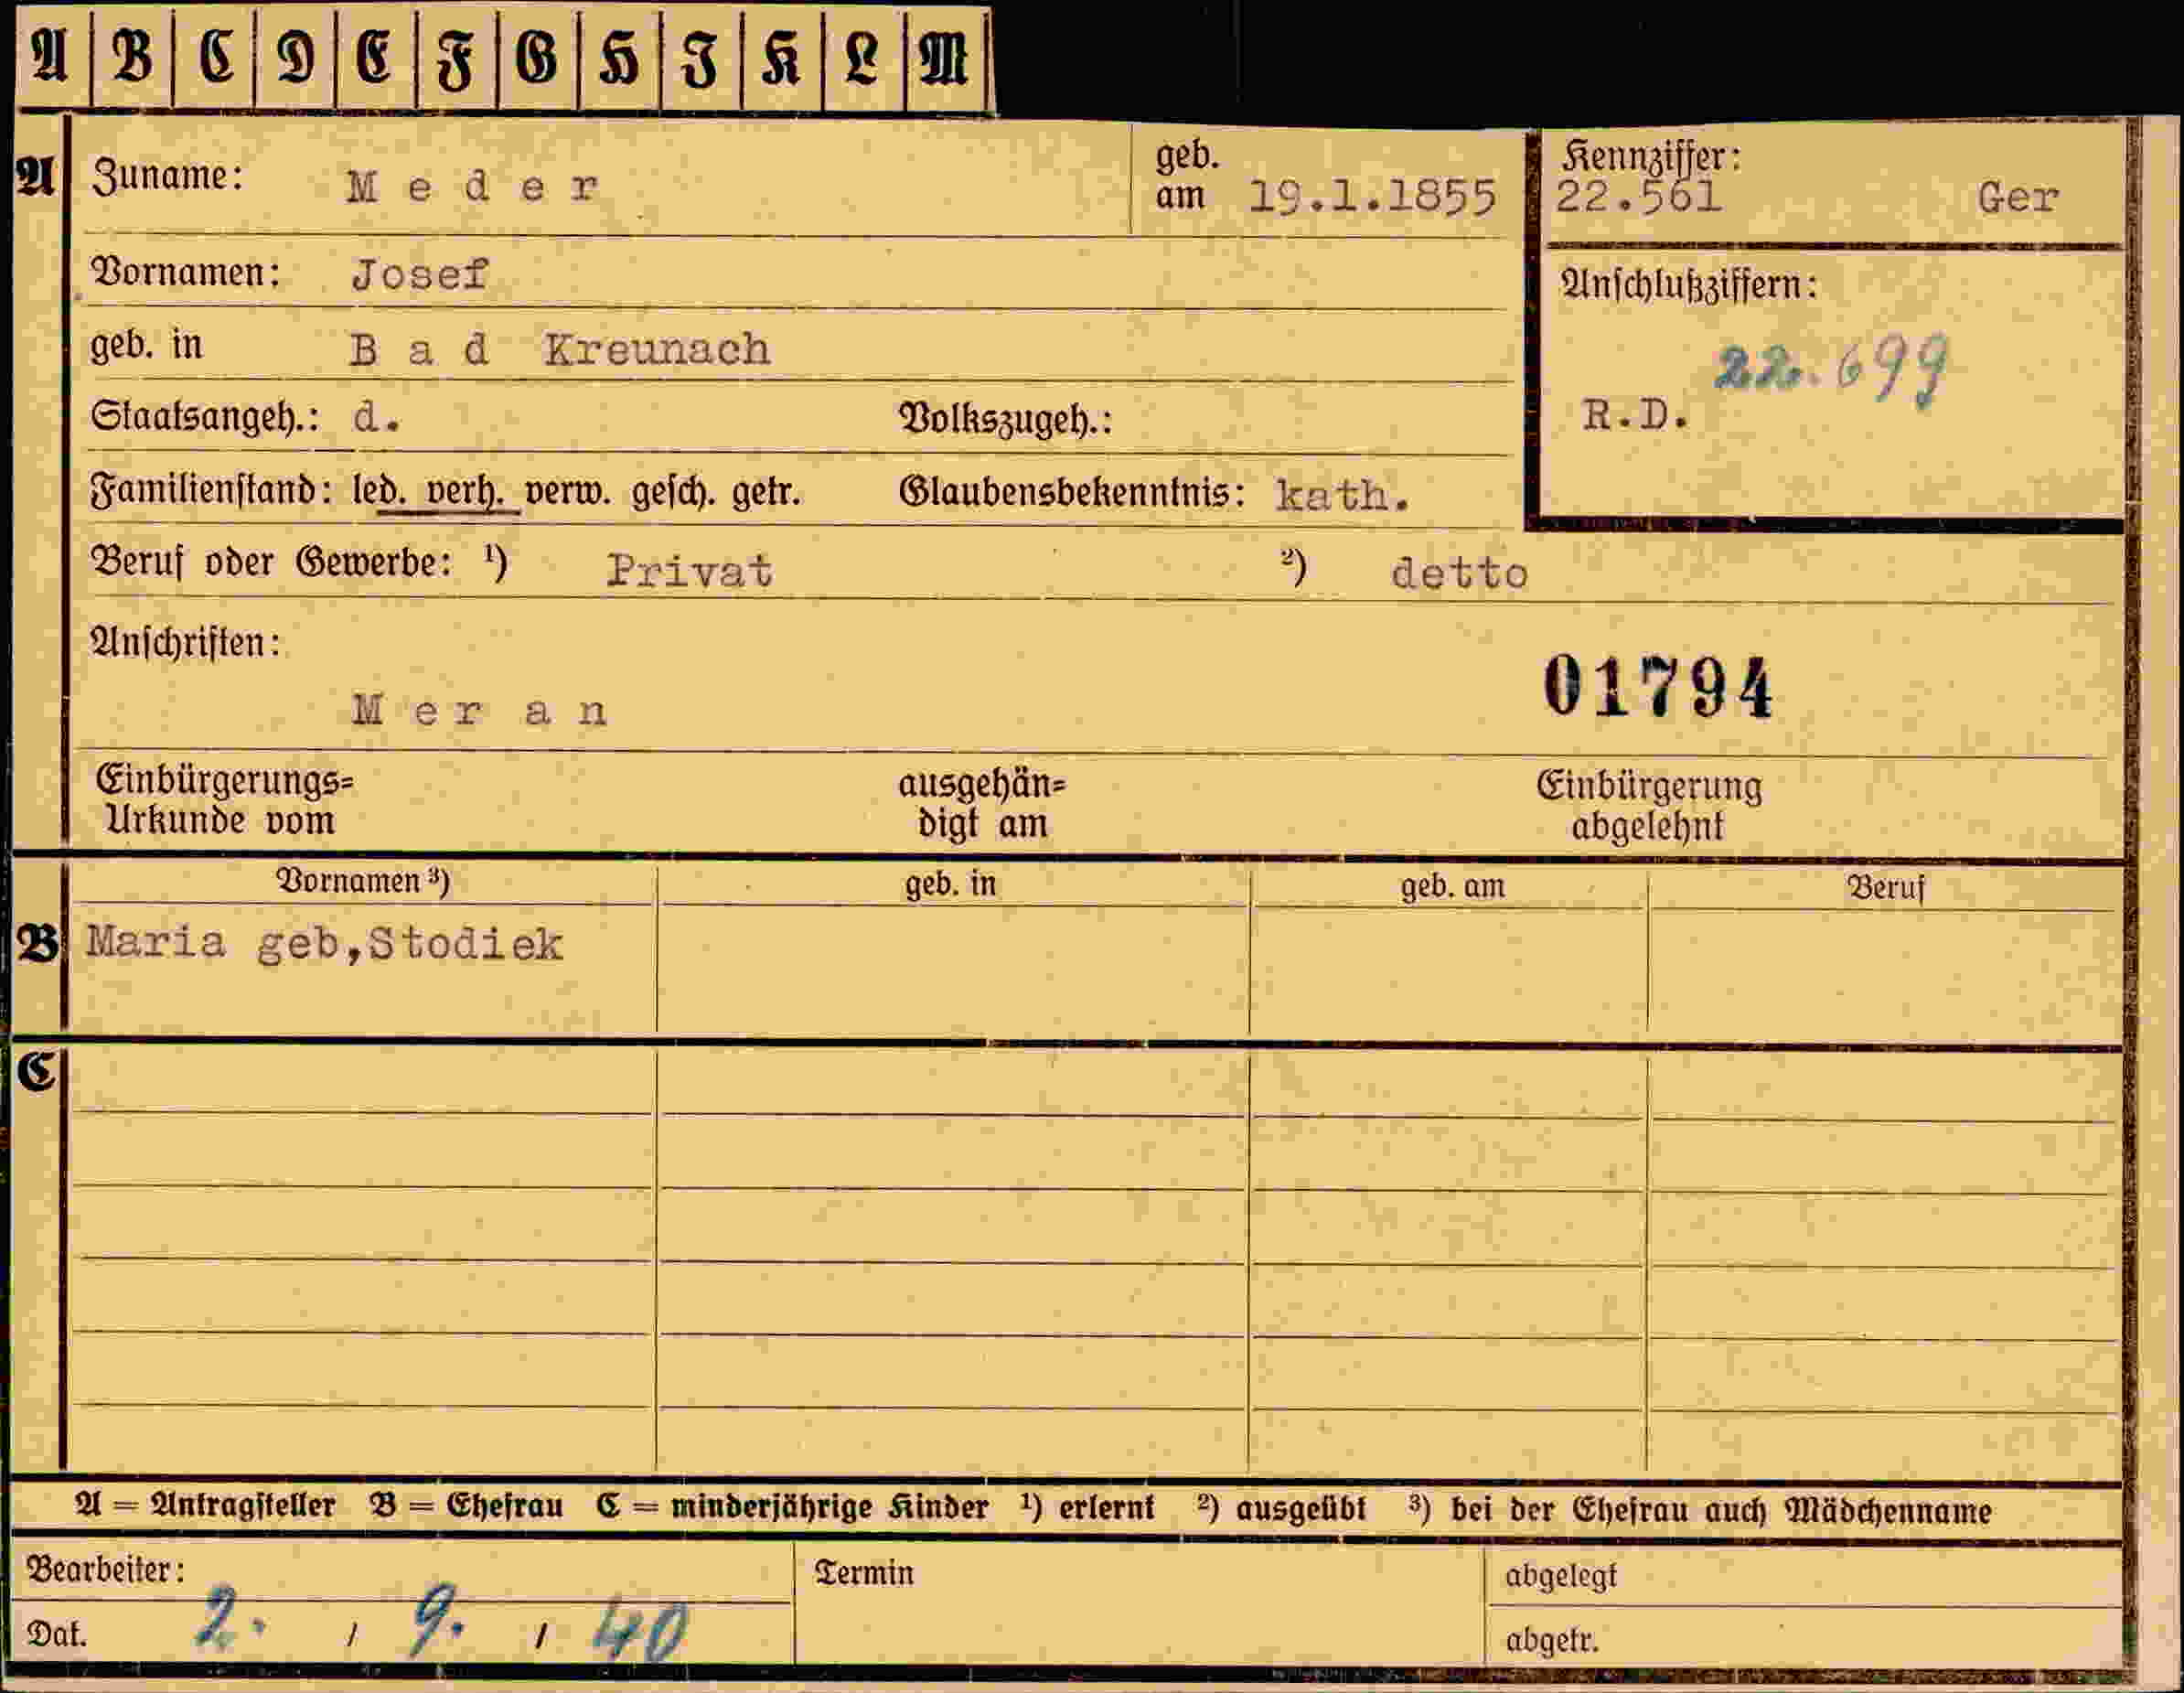 A B C D E F G H I K L M
A Zuname: Meder geb. am 19.1.1855 Kennziffer: 22.561 Ger
Vornamen: Josef Anschlußziffern:
geb. in Bad Kreunach 22.699
Staatsangeh.: d. Volkszugeh.: R.D.
Familienstand: led. verh. verw. gesch. getr. Glaubensbekenntnis: kath.
Beruf oder Gewerbe: ¹) Privat ²) detto
Anschriften:
Meran 01794
Einbürgerungs= ausgehän= Einbürgerung
Urkunde vom digt am abgelehnt
Vornamen ³) geb. in geb. am Beruf
B Maria geb,Stodiek
C
A = Antragsteller B = Ehefrau C = minderjährige Kinder ¹) erlernt ²) ausgeübt ³) bei der Ehefrau auch Mädchenname
Bearbeiter: Termin abgelegt
Dat. 2. / 9. / 40 abgetr.